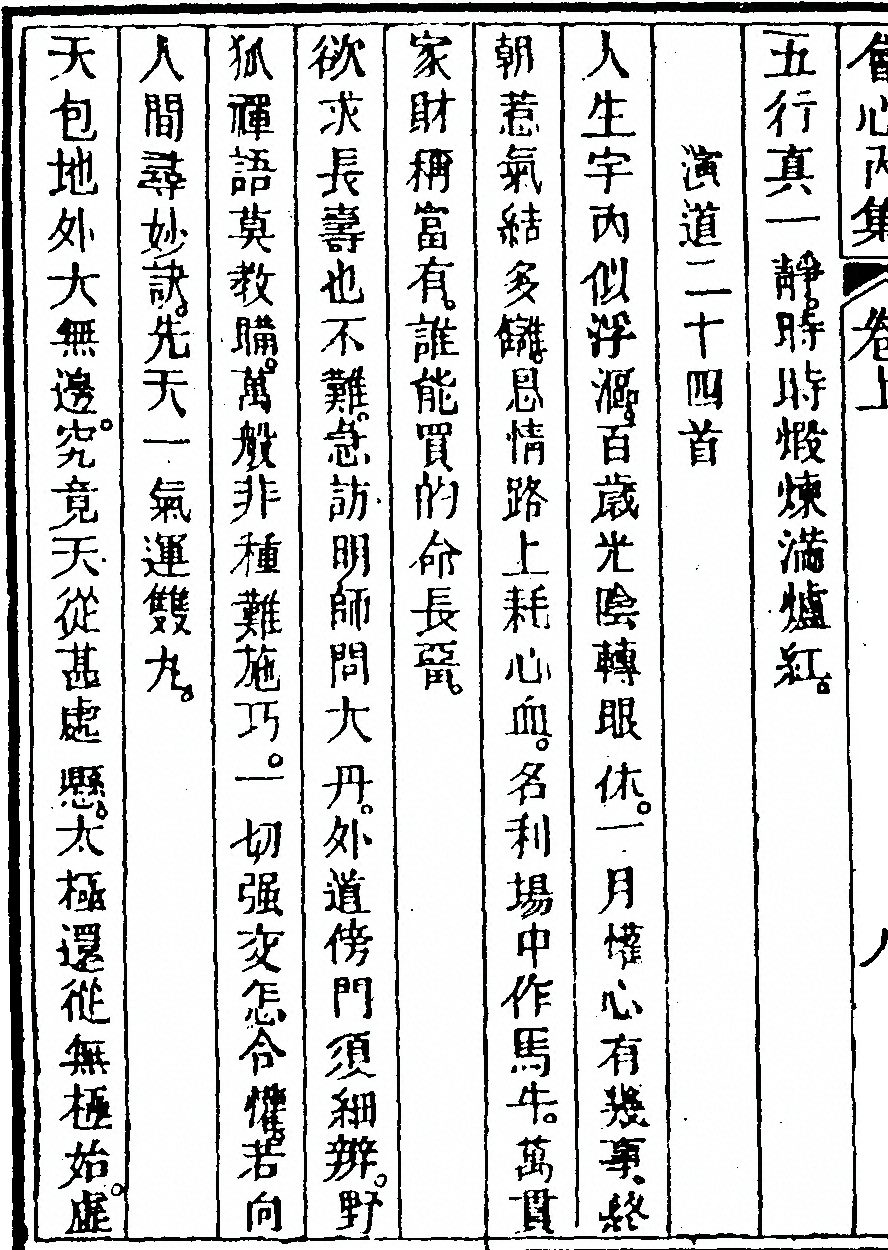 會心內集 卷上
五行真一靜時時煆煉滿爐紅
演道二十四首
人生宇內似浮漚百歲光陰轉眼休一月懽心有幾事終
朝惹氣結多讎恩情路上耗心血名利場中作馬牛萬貫
家財稱富有誰能買的命長留
欲求長壽也不難急訪明師問大丹外道傍門須細辨野
狐禪語莫教瞞萬般非種難施巧一切强交怎合懽若向
人間尋妙訣先天一氣運雙丸
天包地外大無邊究竟天從甚處懸太極還從無極始虛